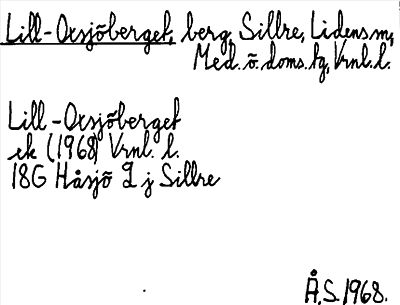 Lill-Oxsjöberget, berg, Sillre, Lidens sn,
Med. ö. doms. tg, Vrnl. l.
Lill-Oxsjöberget
ek (1968) Vrnl. l.
18G Håsjö 2 j Sillre
Å.S. 1968.